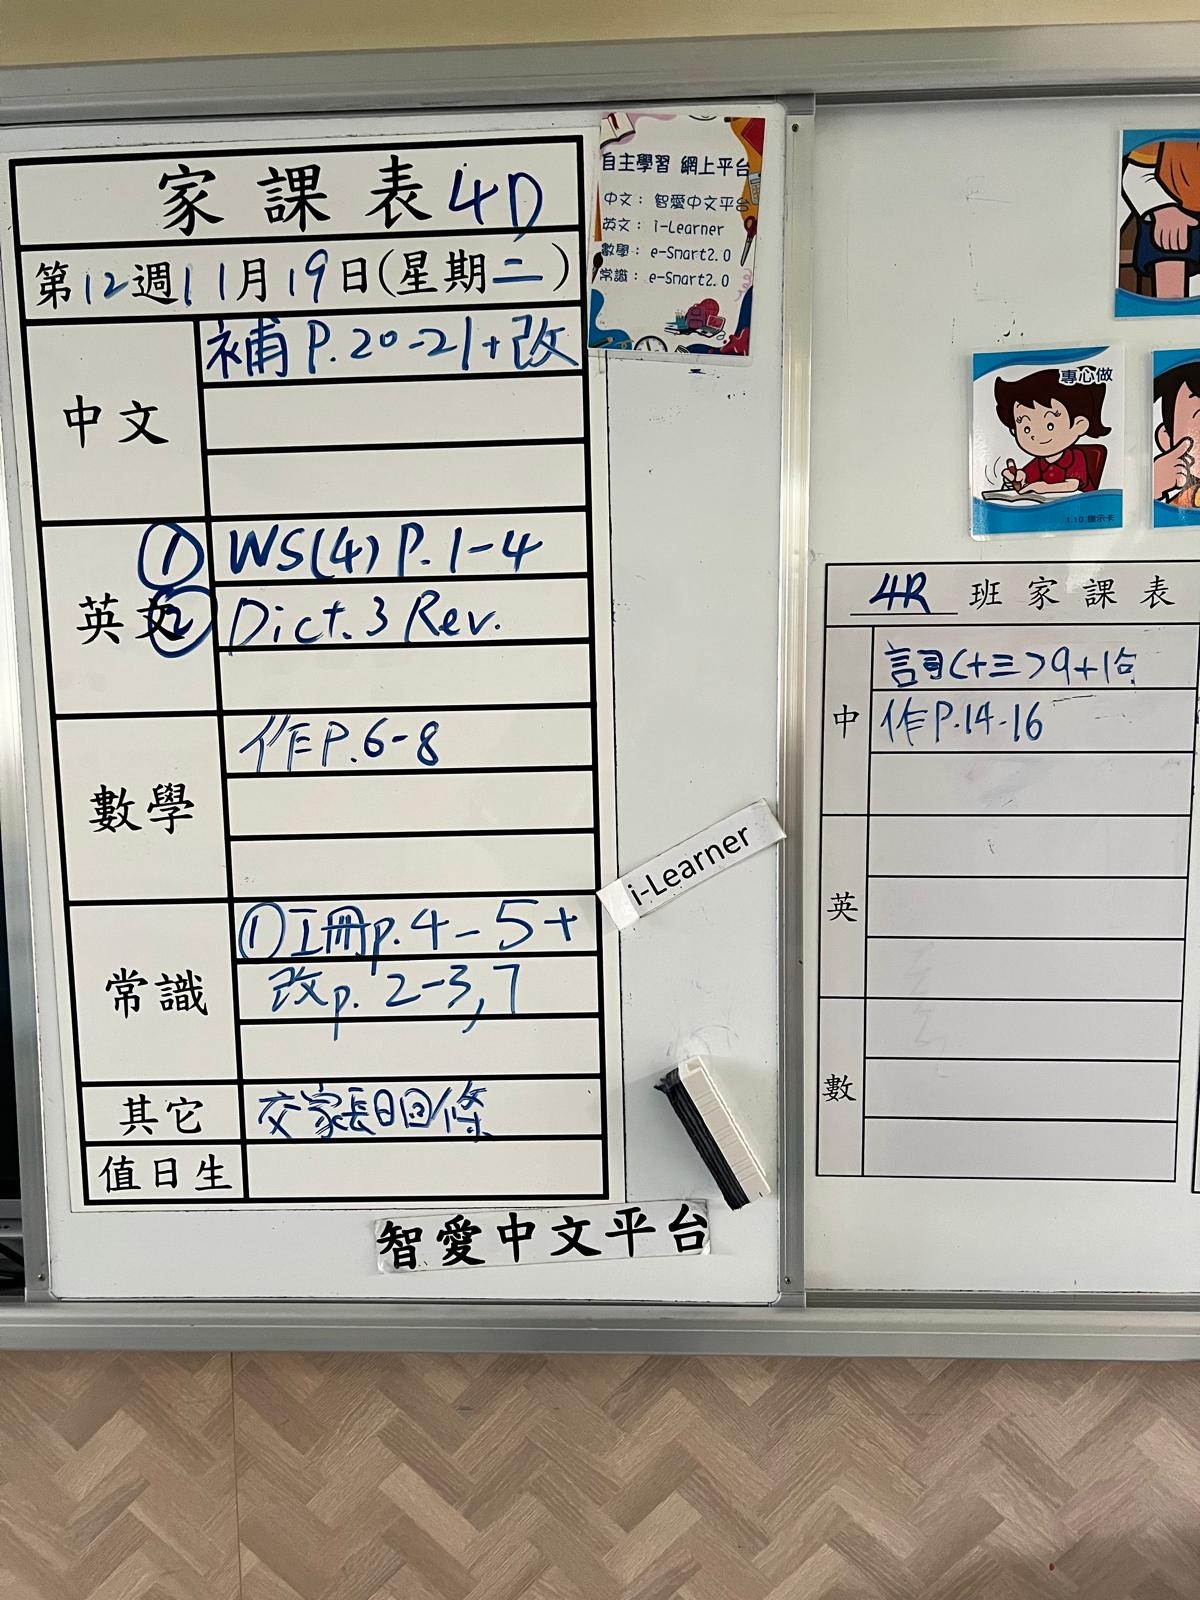 家課表 4D
第12週11月19日(星期二)
中文
補 P.20-21+改
英文
① WS(4) P.1-4
② Dict. 3 Rev.
數學
作P.6-8
常識
①工冊p.4-5+
改p.2-3,7
其它
交家長日回條
值日生
自主學習 網上平台
中文：智愛中文平台
英文：i-Learner
數學：e-Smart2.0
常識：e-Smart2.0
i-Learner
智愛中文平台
專心做
1.10 提示卡
4R 班家課表
中
詞(十三)9+1合
作P.14-16
英
數